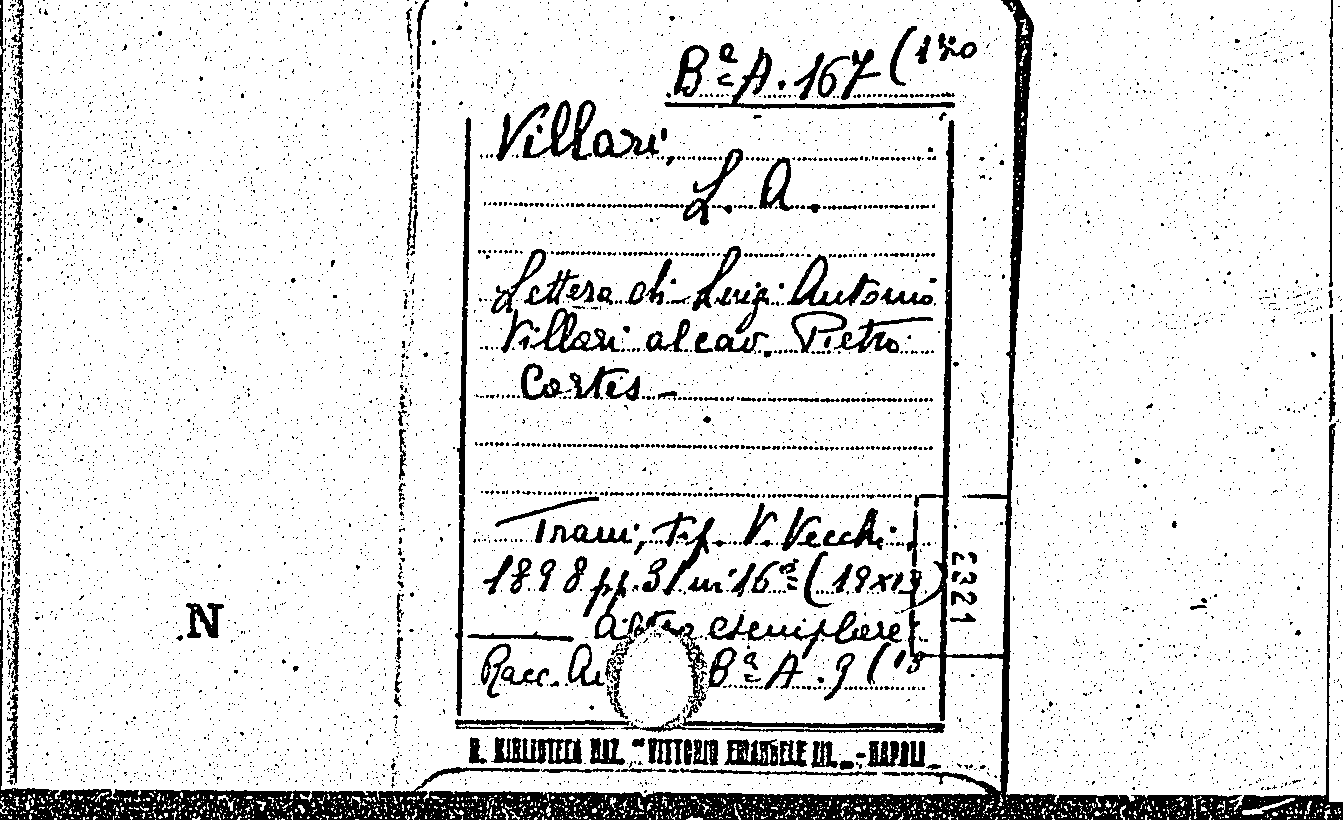 Bª A. 167 (120
Villari,
L. A.
Lettera di Luigi Antonio
Villari al cav. Pietro
Cortes –
Trani, tip. V. Vecchi,
1898 pp. 31 in 16º (19x13)
Altro esemplare:
Racc. Bª A. 9 (13
2321
N
R. BIBLIOTECA NAZ. "VITTORIO EMANUELE III. - NAPOLI